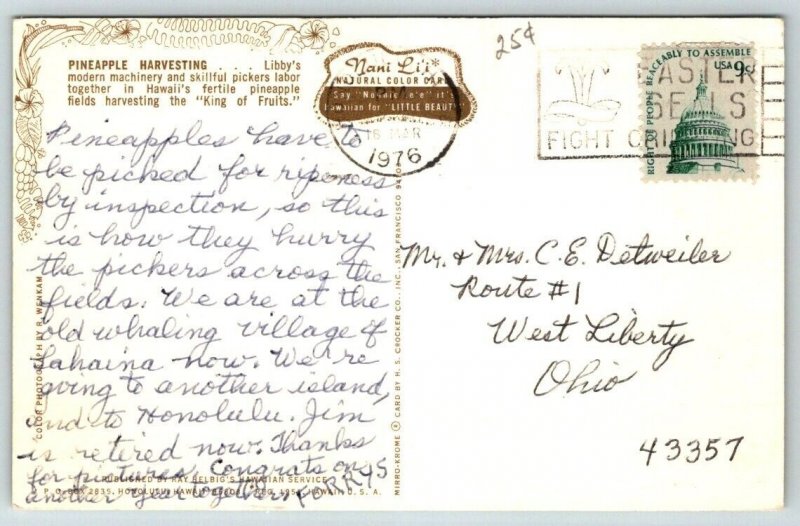 PINEAPPLE HARVESTING . . . Libby's
modern machinery and skillful pickers labor
together in Hawaii's fertile pineapple
fields harvesting the "King of Fruits."
Nani Li'i*
NATURAL COLOR CARD
Hawaiian for "LITTLE BEAUTY"
MAR
1976
25¢
EASTER
SEALS
FIGHT CRIPPLING
RIGHT OF PEOPLE PEACEABLY TO ASSEMBLE
USA 9c
Pineapples have to
be picked for ripeness
by inspection, so this
is how they hurry
the pickers across the
fields. We are at the
old whaling village of
Lahaina now. We're
going to another island,
and to Honolulu. Jim
is retired now. Thanks
for pictures. Congrats on
another year together.
FORRYS
Mr. & Mrs. C.E. Detweiler
Route #1
West Liberty
Ohio
43357
COLOR PHOTOGRAPH BY R. WENKAM
MIRRO-KROME ® CARD BY H. S. CROCKER CO., INC., SAN FRANCISCO
PUBLISHED BY RAY HELBIG'S HAWAIIAN SERVICE
P. O. BOX 2835, HONOLULU, HAWAII, U. S. A.